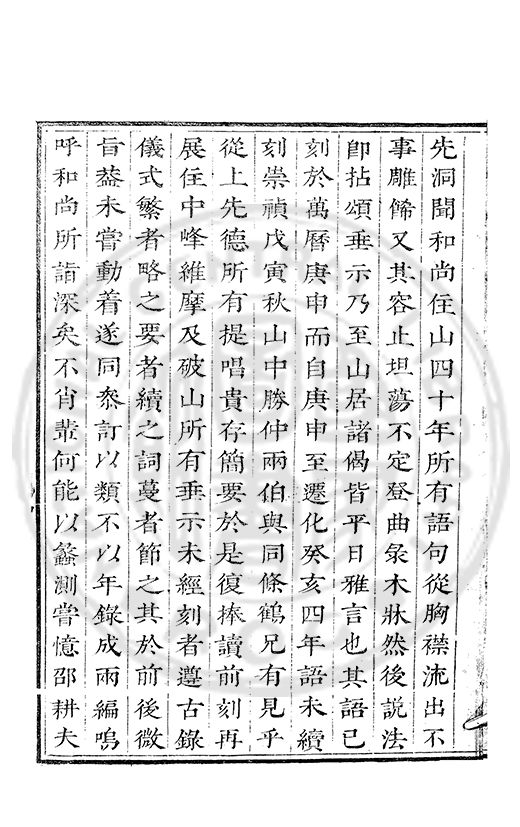 先洞聞和尚住山四十年所有語句從胸襟流出不
事雕餙又其容止坦蕩不定登曲彔木牀然後説法
卽拈頌垂示乃至山居諸偈皆平日雅言也其語已
刻於萬曆庚申而自庚申至遷化癸亥四年語未續
刻崇禎戊寅秋山中勝仲兩伯與同條鶴兄有見乎
從上先德所有提唱貴存簡要於是復捧讀前刻再
展住中峰維摩及破山所有垂示未經刻者遵古錄
儀式繁者略之要者續之詞蔓者節之其於前後微
旨葢未甞動着遂同叅訂以類不以年錄成兩編嗚
呼和尚所詣深矣不肖輩何能以蠡測甞憶邵耕夫